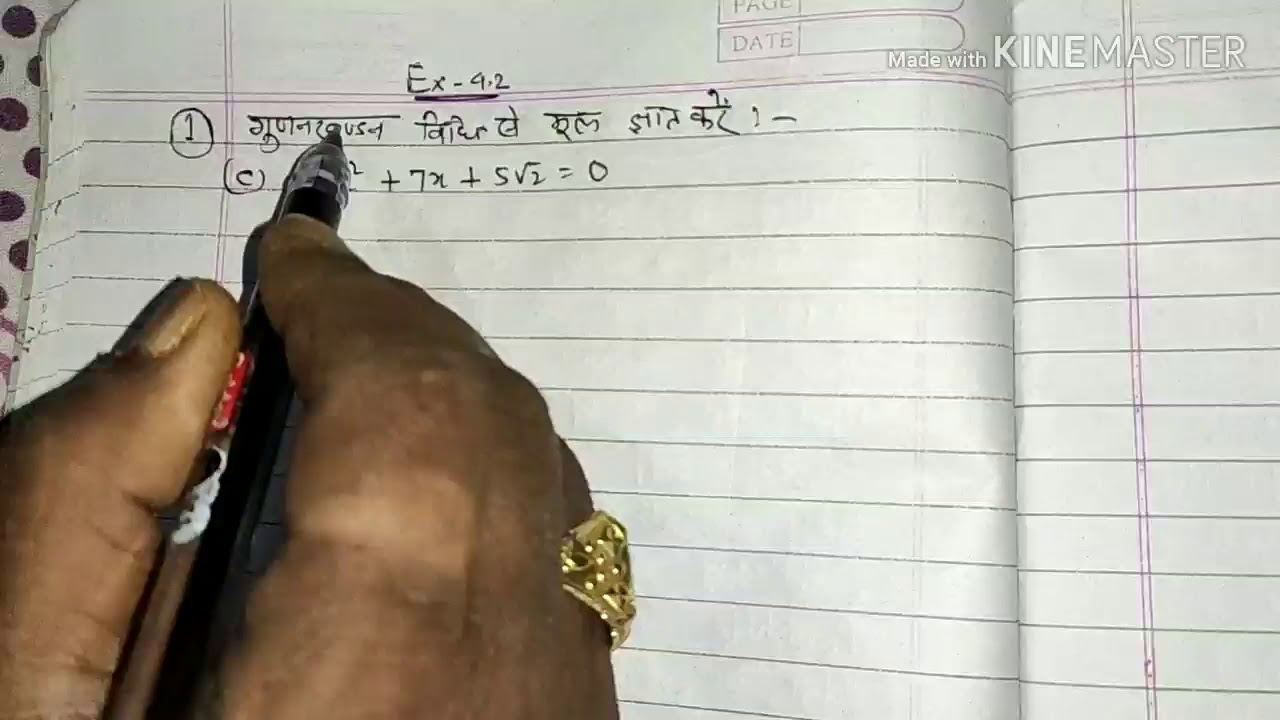 PAGE
DATE
Made with KINEMASTER
Ex - 4.2
1 गुणनखण्डन विधि से मूल ज्ञात करें : -
(c) ² + 7x + 5√2 = 0